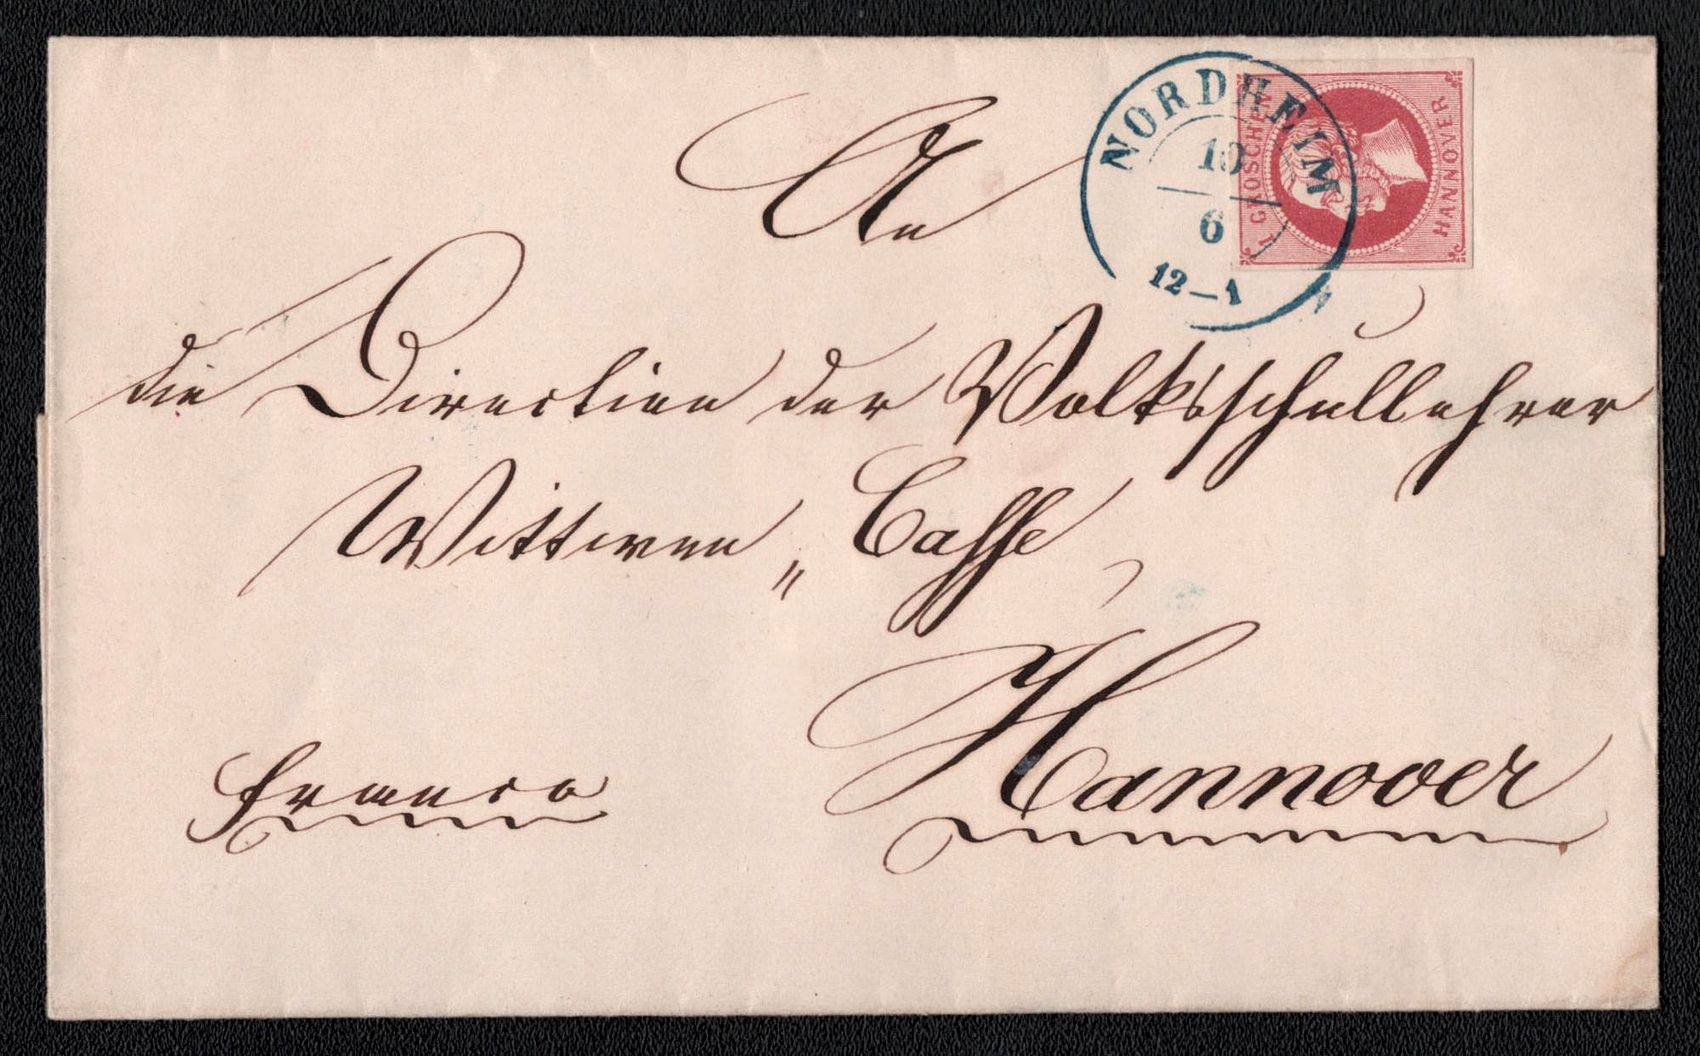 An
NORDHEIM
10
6
12–1
1 GROSCHEN
HANNOVER
die Direction der Volksschullehrer
Wittwen „ Casse
Hannover
franco